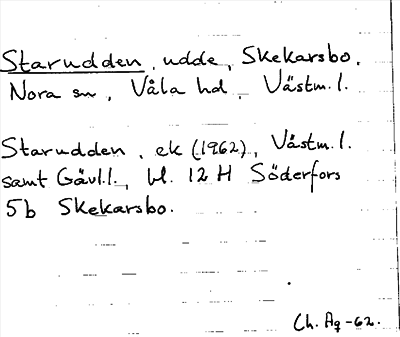 Starudden, udde, Skekarsbo,
Nora sn, Våla hd, Västm.l.
Starudden, ek (1962), Västm.l.
samt Gävl.l., bl. 12 H Söderfors
5b Skekarsbo.
Ch. Ag -62.